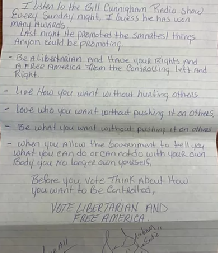 I Listen to the Bill Cunningham Radio Show
Every Sunday night, I guess he has won
many Awards.
Last night he promoted the sanest things
Anyone could be promoting.
- Be A Libertarian and Have your Rights and
A Free America Than the Controlling Left and
Right.
- Live How you want without hurting others
- Love who you want without pushing it on others,
- Be what you want without pushing it on others
- When you Allow the Government to tell you
what you can do or can not do with your own
Body you no longer own yourself.
Before you Vote Think About How
you want to Be Controlled,
VOTE LIBERTARIAN AND
FREE AMERICA